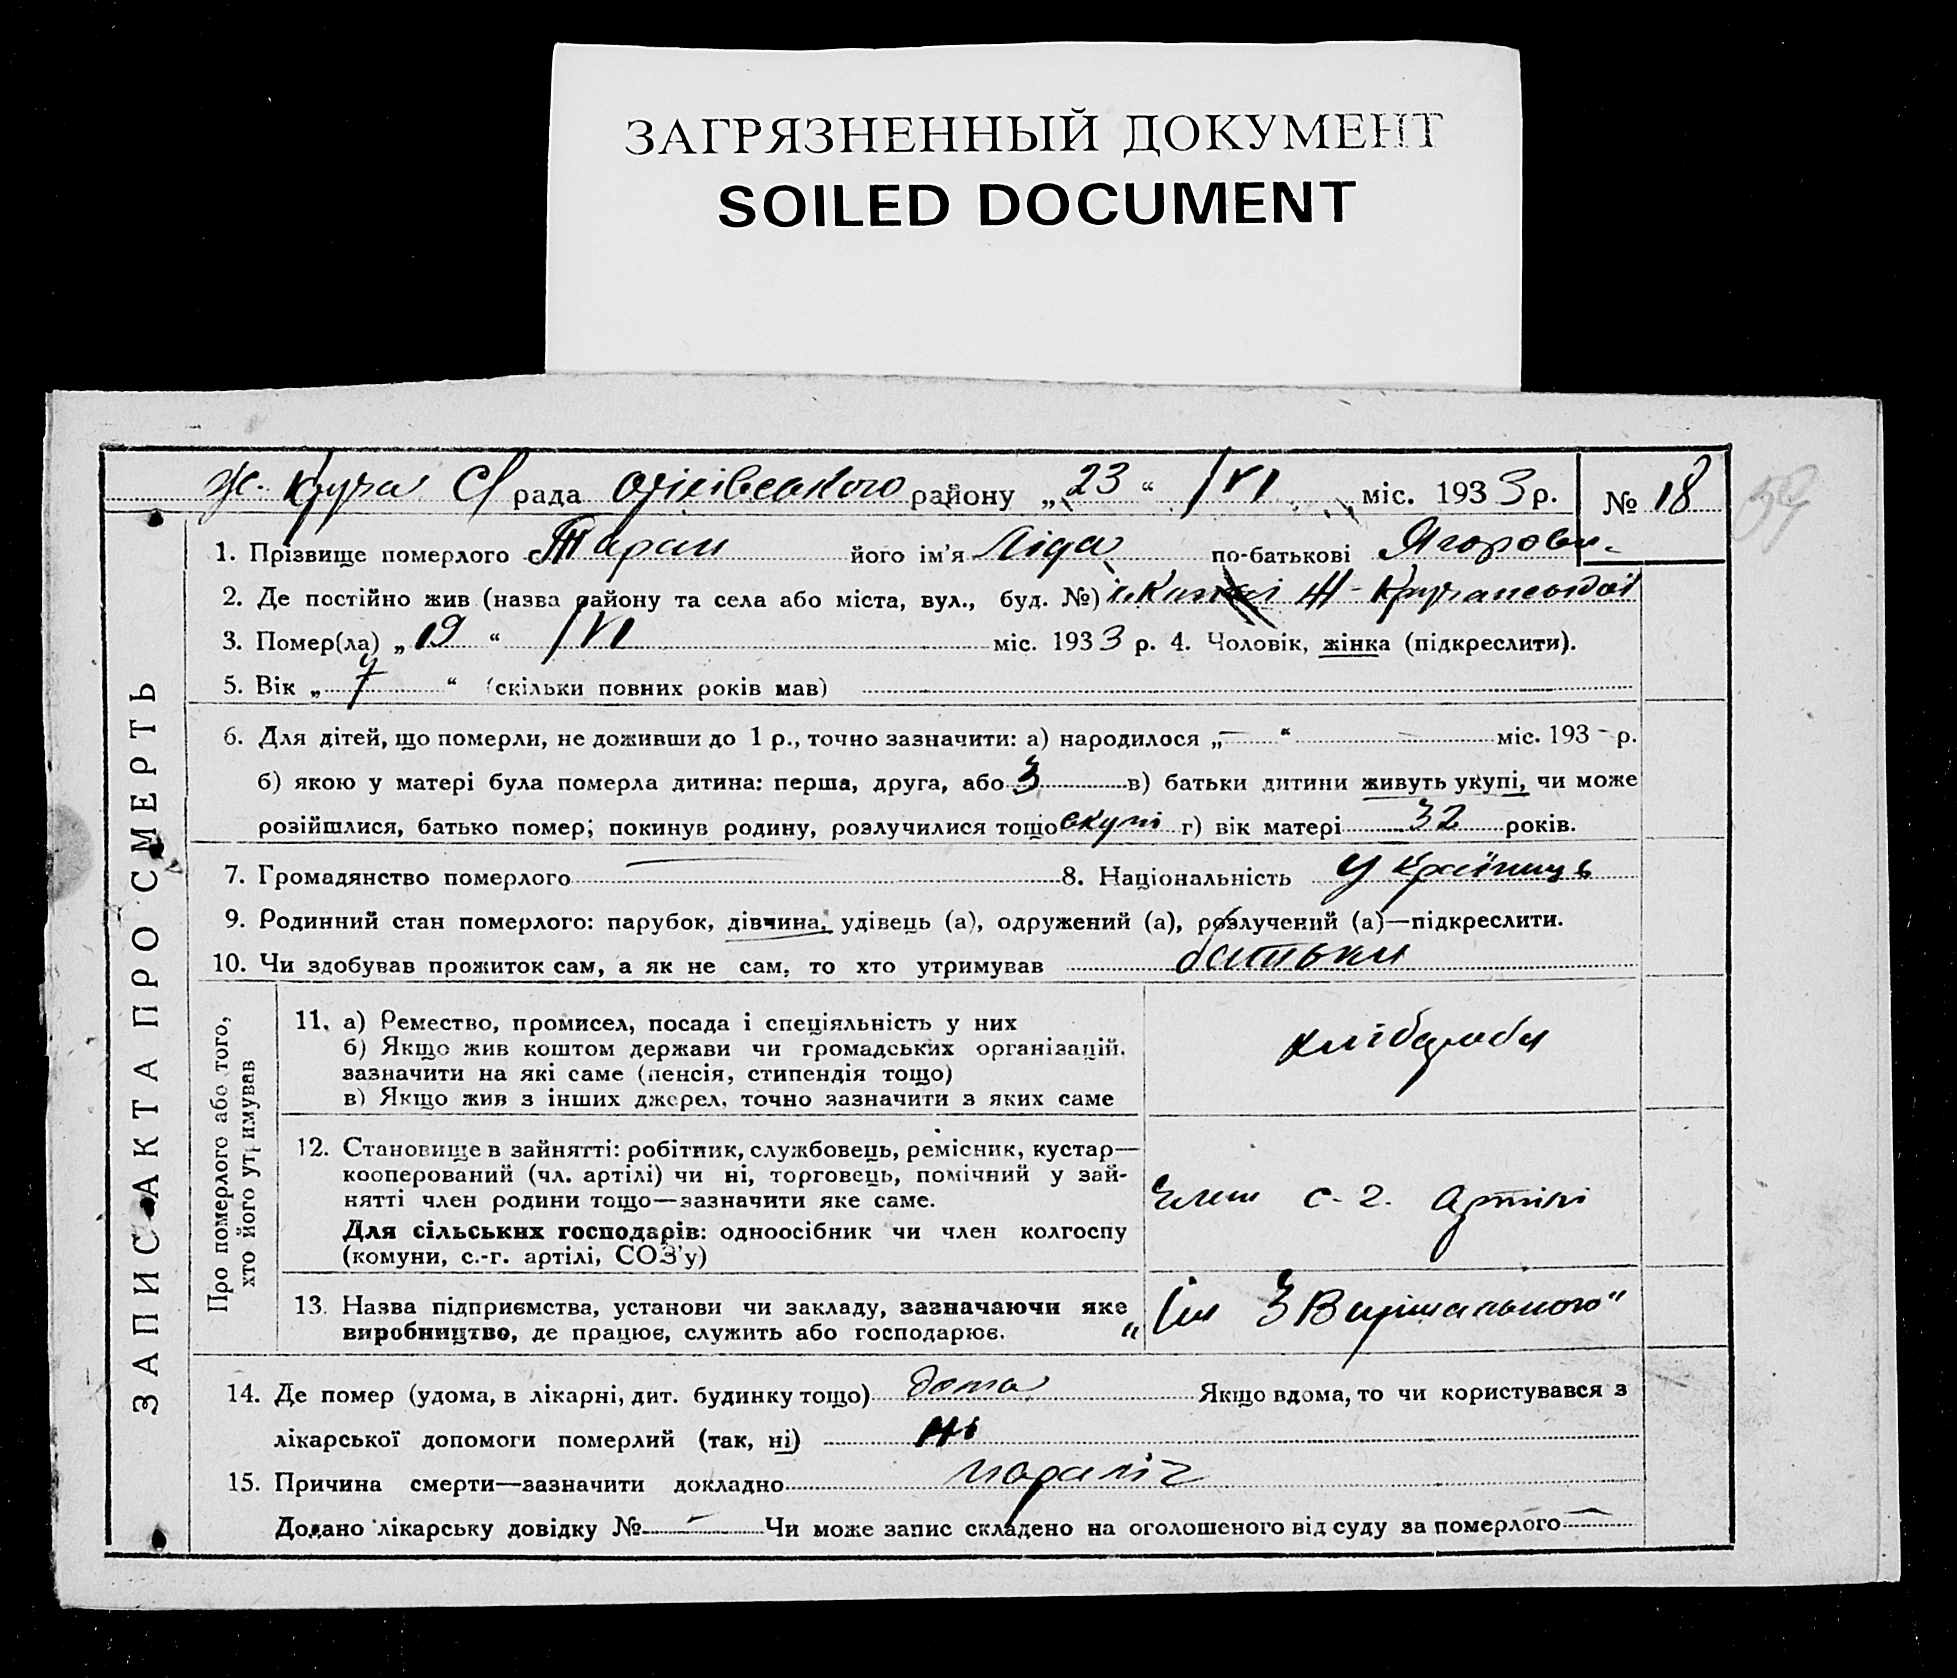 ЗАГРЯЗНЕННЫЙ ДОКУМЕНТ
SOILED DOCUMENT
Ж. Круча С/рада Оріхівського району „23“ /VI міс. 1933 р. № 18
59
ЗАПИС АКТА ПРО СМЕРТЬ
1. Прізвище померлого Таран його ім’я Ліда по-батькові Ягорови.
2. Де постійно жив (назва району та села або міста, вул., буд. №) Ж-Кручанської
3. Помер(ла) „19“ /VI міс. 1933 р. 4. Чоловік, жінка (підкреслити).
5. Вік „7“ (скільки повних років мав)
6. Для дітей, що померли, не доживши до 1 р., точно зазначити: а) народилося „—“ міс. 193 – р.
б) якою у матері була померла дитина: перша, друга, або 3 в) батьки дитини живуть укупі, чи може
розійшлися, батько помер; покинув родину, розлучилися тощо вкупі г) вік матері 32 років.
7. Громадянство померлого — 8. Національність Українць
9. Родинний стан померлого: парубок, дівчина, удівець (а), одружений (а), розлучений (а)—підкреслити.
10. Чи здобував прожиток сам, а як не сам, то хто утримував батьки
Про померлого або того,
хто його утримував
11. а) Ремество, промисел, посада і спеціяльність у них
б) Якщо жив коштом держави чи громадських організацій,
зазначити на які саме (пенсія, стипендія тощо)
в) Якщо жив з інших джерел, точно зазначити з яких саме
хлібороби
12. Становище в зайнятті: робітник, службовець, ремісник, кустар—
кооперований (чл. артілі) чи ні, торговець, помічний у зай-
нятті член родини тощо—зазначити яке саме.
Для сільських господарів: одноосібник чи член колгоспу
(комуни, с.-г. артілі, СОЗ’у)
член с-г. артілі
13. Назва підприємства, установи чи закладу, зазначаючи яке
виробництво, де працює, служить або господарює.
„Ім 3 Вирішального“
14. Де помер (удома, в лікарні, дит. будинку тощо) дома Якщо вдома, то чи користувався з
лікарської допомоги померлий (так, ні) ні
15. Причина смерти—зазначити докладно параліч
Додано лікарську довідку № — Чи може запис складено на оголошеного від суду за померлого —